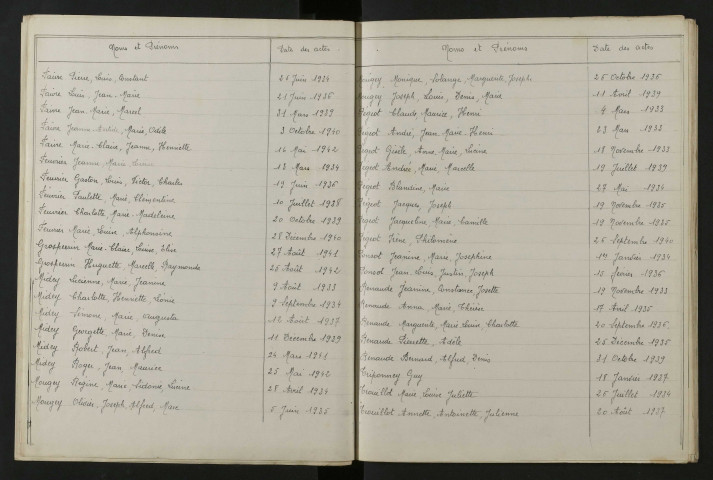 Noms et Prénoms Date des actes
Faivre Pierre, Louis, Constant 25 Juin 1934
Faivre Louis, Jean-Marie 21 Juin 1936
Faivre Jean, Marie, Marcel 31 Mars 1939
Faivre Jeanne, Marie, Odile 3 Octobre 1940
Faivre Marie, Claire, Jeanne, Henriette 12 Mai 1942
Feuvrier Jeanne, Marie, Louise 13 Mars 1934
Feuvrier Gaston, Louis, Victor, Charles 19 Juin 1936
Feuvrier Paulette, Marie, Clémentine 10 Juillet 1938
Feuvrier Charlotte, Marie-Madeleine 20 Octobre 1939
Feuvrier Marie, Louise, Alphonsine 28 Décembre 1940
Grosperrin Marie, Claire, Louise, Elise 27 Août 1941
Grosperrin Huguette, Marcelle, Raymonde 26 Août 1942
Midey Lucienne, Marie, Jeanne 9 Août 1933
Midey Charlotte, Henriette, Louise 9 Septembre 1934
Midey Simone, Marie, Augusta 12 Août 1937
Midey Georgette, Marie, Denise 11 Décembre 1939
Midey Robert, Jean, Alfred 24 Mars 1941
Midey Roger, Jean, Maurice 25 Mai 1942
Mougey Régine, Marie, Sidonie, Louise 28 Avril 1934
Mougey Olivier, Joseph, Alfred, Marc 5 Juin 1935
Noms et Prénoms Date des actes
Mougey Monique, Solange, Marguerite, Joseph 25 Octobre 1936
Mougey Joseph, Louis, Denis, Marie 11 Avril 1939
Pegeot Claude, Maurice, Henri 4 Mars 1933
Pegeot André, Jean, Marie, Henri 23 Mars 1933
Pegeot Gisèle, Anne, Marie, Louise 18 Novembre 1933
Pegeot Andrée, Marie, Marcelle 19 Juillet 1939
Pegeot Blandine, Marie 27 Mai 1934
Pegeot Jacques, Joseph 19 Novembre 1935
Pegeot Jacqueline, Marie, Camille 19 Novembre 1935
Pegeot Irène, Philomène 26 Septembre 1940
Jeanine, Marie, Josephine 17 Janvier 1934
Jean, Louis, Justin, Joseph 15 février 1936
Renaude Jeannine, Constance, Josette 19 Novembre 1933
Renaude Anne, Marie, Thérèse 17 Avril 1936
Renaude Marguerite, Marie, Louise, Charlotte 20 Septembre 1936
Renaude Pierrette, Adèle 26 Décembre 1936
Renaude Bernard, Alfred, Denis 31 Octobre 1939
Triponney Guy 18 Janvier 1937
Trouillot Marie, Louise, Juliette 25 Juillet 1934
Trouillot Annette, Antoinette, Julienne 20 Août 1937